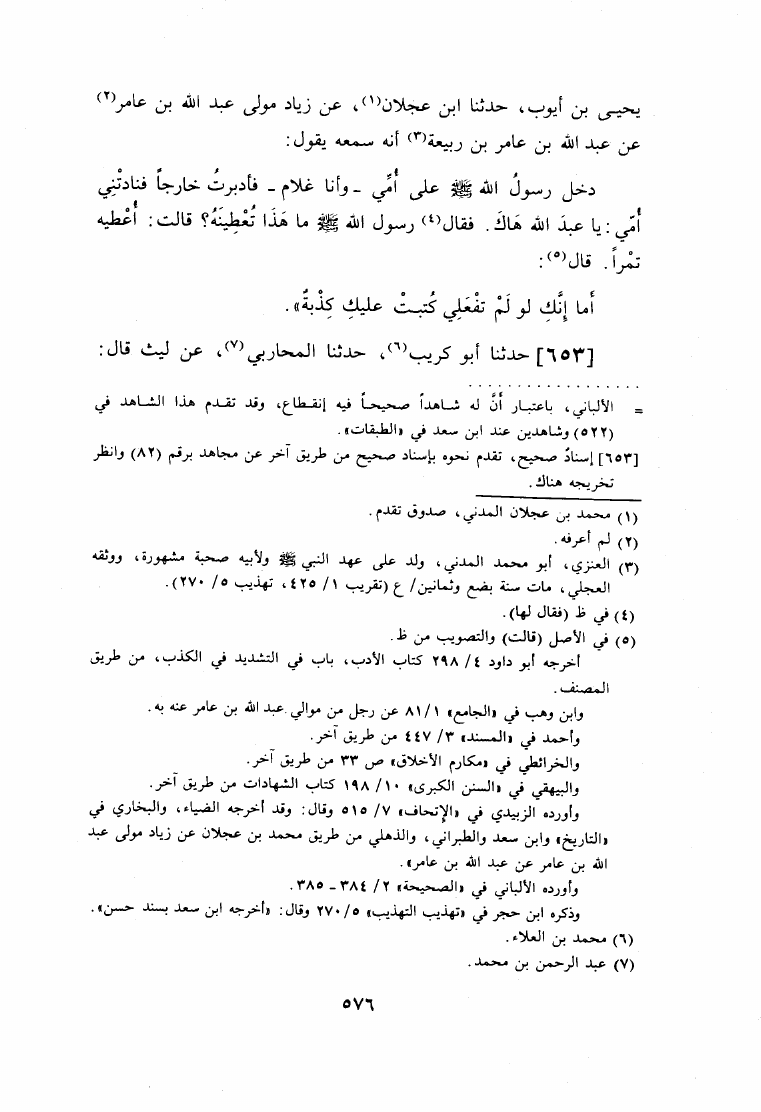 يحيى بن أيوب، حدثنا ابن عجلان(١)، عن زياد مولى عبد الله بن عامر(٢)
عن عبد الله بن عامر بن ربيعة(٣) أنه سمعه يقول:
دخل رسولُ الله ﷺ على أُمِّي - وأنا غلام - فأدبرتُ خارجاً فنادتْنِي
أُمّي: يا عبدَ الله هَاكَ. فقال(٤) رسول الله ﷺ ما هَذَا تُعْطِينَهُ؟ قالت: أُعْطيه
تمْراً. قال(٥):
أَما إنَّكِ لو لَمْ تفْعَلِي كُتبَتْ عليكِ كِذْبةٌ».
[٦٥٣] حدثنا أبو كريب(٦)، حدثنا المحاربي(٧)، عن ليث قال:
= الألباني، باعتبار أنَّ له شاهداً صحيحاً فيه إنقطاع، وقد تقدم هذا الشاهد في
(٥٢٢) وشاهدين عند ابن سعد في «الطبقات».
[٦٥٣] إسنادٌ صحيح، تقدم نحوه بإسناد صحيح من طريق آخر عن مجاهد برقم (٨٢) وانظر
تخريجه هناك.
(١) محمد بن عجلان المدني، صدوق تقدم.
(٢) لم أعرفه.
(٣) العنزي، أبو محمد المدني، ولد على عهد النبي ﷺ ولأبيه صحبة مشهورة، ووثقه
العجلي، مات سنة بضع وثمانين/ ع (تقريب ١/ ٤٢٥، تهذيب ٥/ ٢٧٠).
(٤) في ظ (فقال لها).
(٥) في الأصل (قالت) والتصويب من ظ.
أخرجه أبو داود ٤/ ٢٩٨ كتاب الأدب، باب في التشديد في الكذب، من طريق
المصنف.
وابن وهب في «الجامع» ٨١/١ عن رجل من موالي عبد الله بن عامر عنه به.
وأحمد في «المسند» ٣/ ٤٤٧ من طريق آخر.
والخرائطي في «مكارم الأخلاق» ص ٣٣ من طريق آخر.
والبيهقي في «السنن الكبرى» ١٠/ ١٩٨ كتاب الشهادات من طريق آخر.
وأورده الزبيدي في «الإتحاف» ٧/ ٥١٥ وقال: وقد أخرجه الضياء، والبخاري في
«التاريخ» وابن سعد والطبراني، والذهلي من طريق محمد بن عجلان عن زياد مولى عبد
الله بن عامر عن عبد الله بن عامر».
وأورده الألباني في «الصحيحة» ٢/ ٣٨٤ - ٣٨٥.
وذكره ابن حجر في «تهذيب التهذيب» ٢٧٠/٥ وقال: «أخرجه ابن سعد بسند حسن».
(٦) محمد بن العلاء.
(٧) عبد الرحمن بن محمد.
٥٧٦